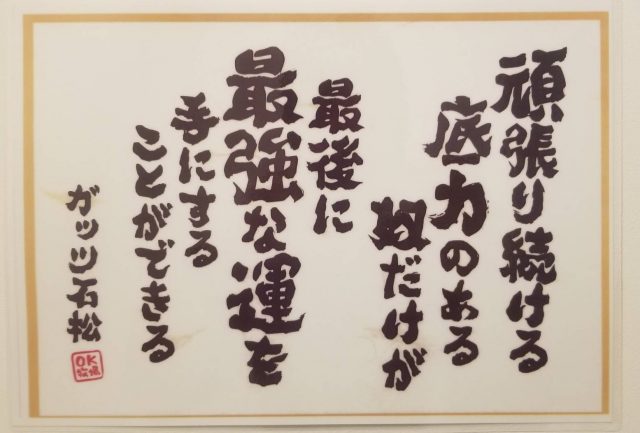 頑張り続ける
底力のある
奴だけが
最後に
最強な運を
手にする
ことができる
ガッツ石松
OK
牧場